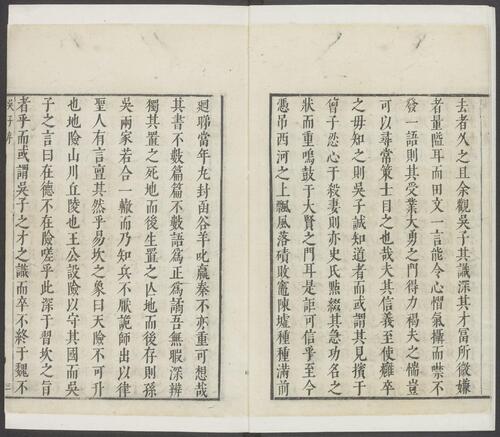 去者久之且余觀吳子其識深其才富所微嫌
者量隘耳而田文一言能令心懾氣攝而噤不
發一語則其受業大勇之門得力褐夫之惴豈
可以尋常策士目之也哉夫其信義至使癰卒
之母知之則吳子誠知道者而或謂其見擯于
曾子忍心于殺妻則亦史氏點綴其急功名之
狀而重鳴鼓于大賢之門耳是詎可信乎至今
憑吊西河之上飄風落磧敗竈陳墟種種滿前
廻睇當年九封函谷羊叱嬴秦不亦重可想哉
其書不數篇篇不數語爲正爲譎吾無暇深辨
獨其置之死地而後生置之亾地而後存則孫
吳兩家若合一轍而乃知兵不厭詭師出以律
聖人有言亶其然乎易坎之象曰天險不可升
也地險山川丘陵也王公設險以守其國而吳
子之言曰在德不在險嗟乎此深于習坎之旨
者乎而或謂吳子之才之識而卒不終于魏不